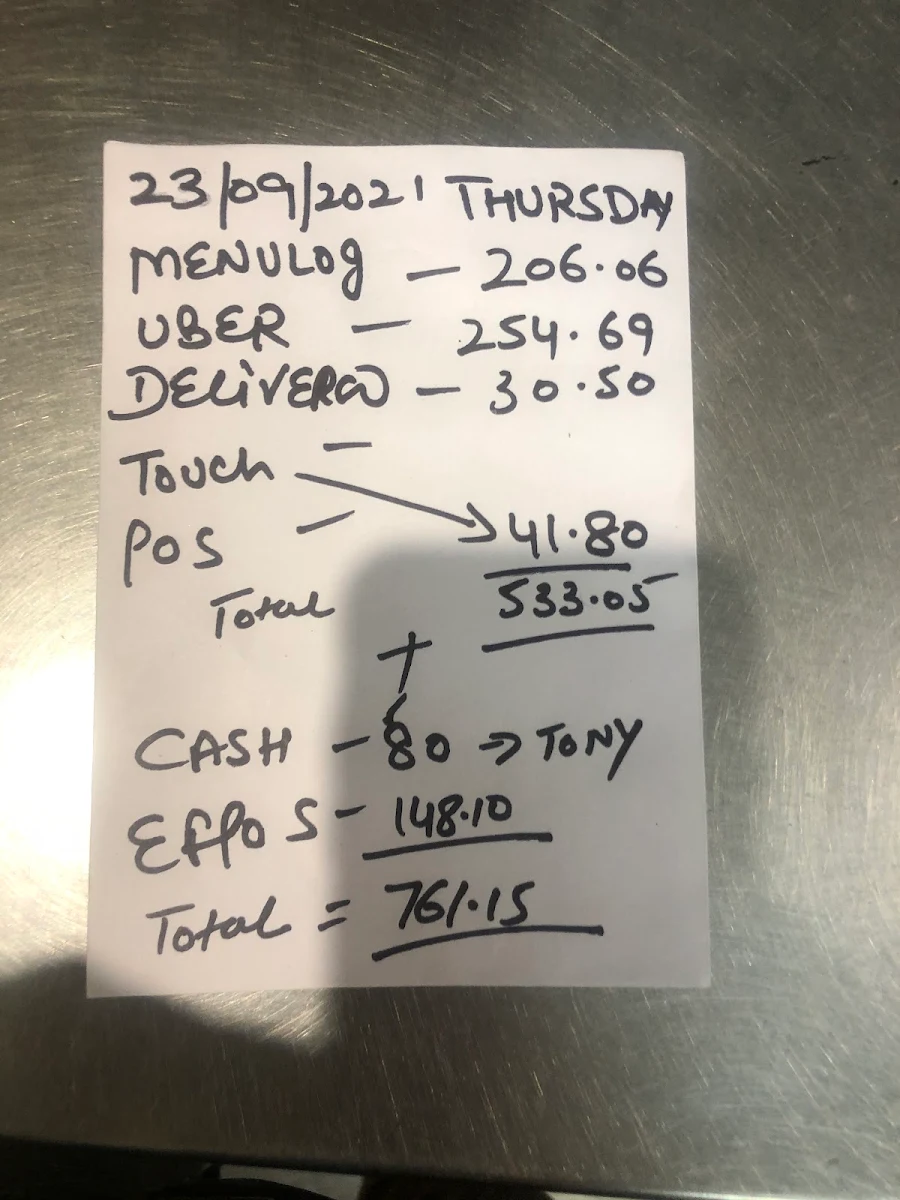 23/09/2021 THURSDAY
MENULOg - 206.06
UBER - 254.69
DELiVEROO - 30.50
Touch -
POS - → 41.80
Total 533.05
+
CASH - 80 → TONY
EffPOS - 148.10
Total = 761.15